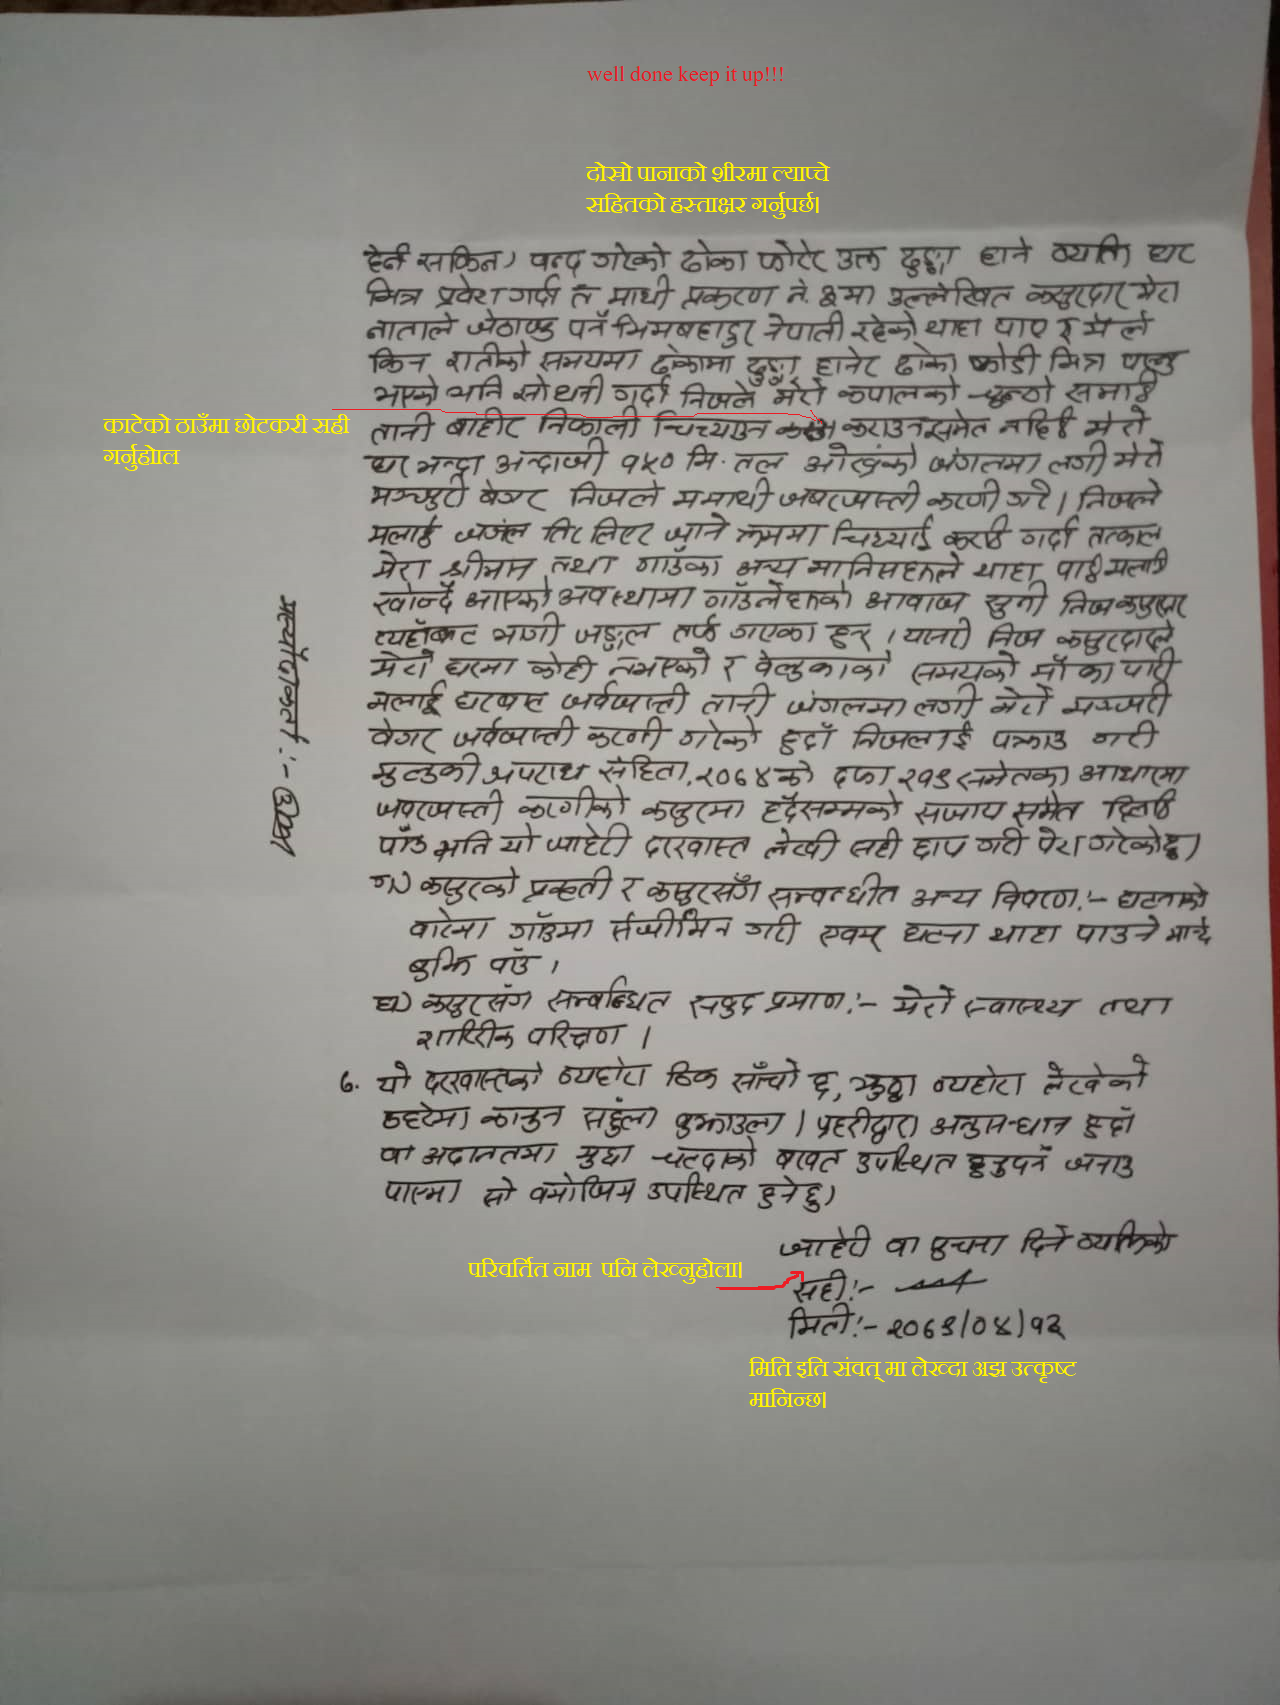 well done keep it up!!!
दोस्रो पानाको शीरमा ल्याप्चे
सहितको हस्ताक्षर गर्नुपर्छ।
हेर्न सकिन। बन्द गरेको ढोका फोरेर उक्त ढुङ्गा हाने व्यक्ति घर
भित्र प्रवेश गर्दा त माथी प्रकरण नं. ३मा उल्लेखित कसुरदार मेरा
नाताले जेठाजु पर्ने भिमबहादुर नेपाली रहेको थाहा पाए र मैले
किन रातीको समयमा ढोकामा ढुङ्गा हानेर ढोका फोडी भित्र पस्नु
भएको भनि सोधनी गर्दा निजले मेरो कपालको चुल्ठो समाई
काटेको ठाउँमा छोटकरी सही
गर्नुहोाल
तानी बाहीर निकाली चिच्याउन कराउन समेत नदिई मेरो
घर भन्दा अन्दाजी १५० मि. तल ओखेको जंगलमा लगी मेरो
मञ्जुरी बेगर निजले ममाथी जबरजस्ती करणी गरे। निजले
मलाई जंगल तिर लिएर जाने क्रममा चिच्याई कराई गर्दा तत्काल
मेरा श्रीमान तथा गाउँका अन्य मानिसहरूले थाहा पाई मलाई
खोज्दै आएको अवस्थामा गाउँलेहरूको आवाज सुनी निज कसुरदार
त्यहाँबाट भागी जङ्गल तर्फ गएका हुन्। यसरी निज कसुरदारले
मेरो घरमा कोही नभएको र बेलुकाको समयको मौका पारी
मलाई घरबाट जर्वजस्ती तानी जंगलमा लगी मेरो मञ्जुरी
वेगर जर्वजस्ती करणी गरेको हुदाँ निजलाई पक्राउ गरी
मुलुकी अपराध संहिता, २०७४को दफा २१९ समेतका आधारमा
जबरजस्ती करणीको कसुरमा हदैसम्मको सजाय समेत दिलाई
पाँउ भनि यो जाहेरी दरखास्त लेखी सही छाप गरी पेश गरेकोछु।
ग) कसुरको प्रकृती र कसुरसँग सम्वन्धीत अन्य विवरण:- घटनाको
वारेमा गाँउमा सर्जीमिन गरी एवम् घटना थाहा पाउने मान्छे
बुझि पाँउ।
घ) कसुरसँग सम्वन्धित सबुद प्रमाण:- मेरो स्वास्थ्य तथा
शारिरीक परिक्षण।
७. यो दरखास्तको व्यहोरा ठिक साँचो छ, झुठ्ठा व्यहोरा लेखेको
ठहरेमा कानुन सहुँला बुझाउला। प्रहरीद्वारा अनुसन्धान हुदाँ
वा अदालतमा मुद्दा चल्दाको बखत उपस्थित हुनुपर्ने जनाउ
पाएमा सो वमोजिम उपस्थित हुनेछु।
जाहेरी वा सुचना दिने व्यक्तिको
परिवर्तित नाम पनि लेख्नुहोला।
सही:-
मिती:- २०७९/०४/१३
मिति इति संवत् मा लेख्दा अझ उत्कृष्ट
मानिन्छ।